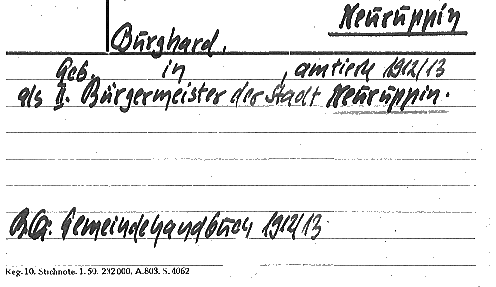 Neuruppin
Burghard,
geb. in , amtierte 1912/13
als II. Bürgermeister der Stadt Neuruppin.
Gemeindehandbuch 1912/13
Reg. 10. Stichnote. 1. 50. 232000. A.803. S. 4062